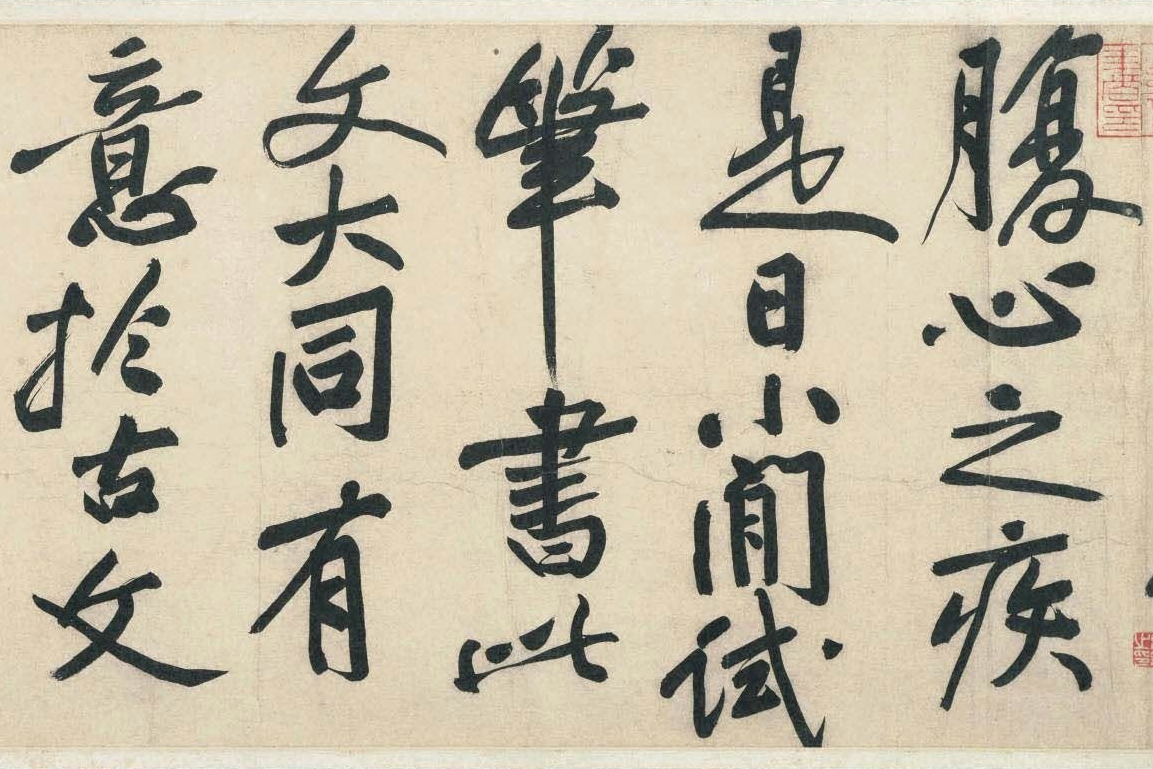 腹心之疾
是日小閒試
筆書此
文大同有
意於古文